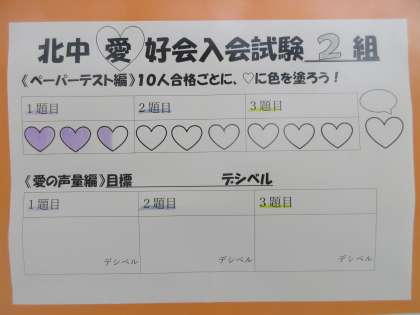 北中 愛 好会入会試験 2 組
《ペーパーテスト編》10人合格ごとに、♡に色を塗ろう!
1題目 2題目 3題目
《愛の声量編》目標 デシベル
1題目 2題目 3題目
デシベル デシベル デシベル